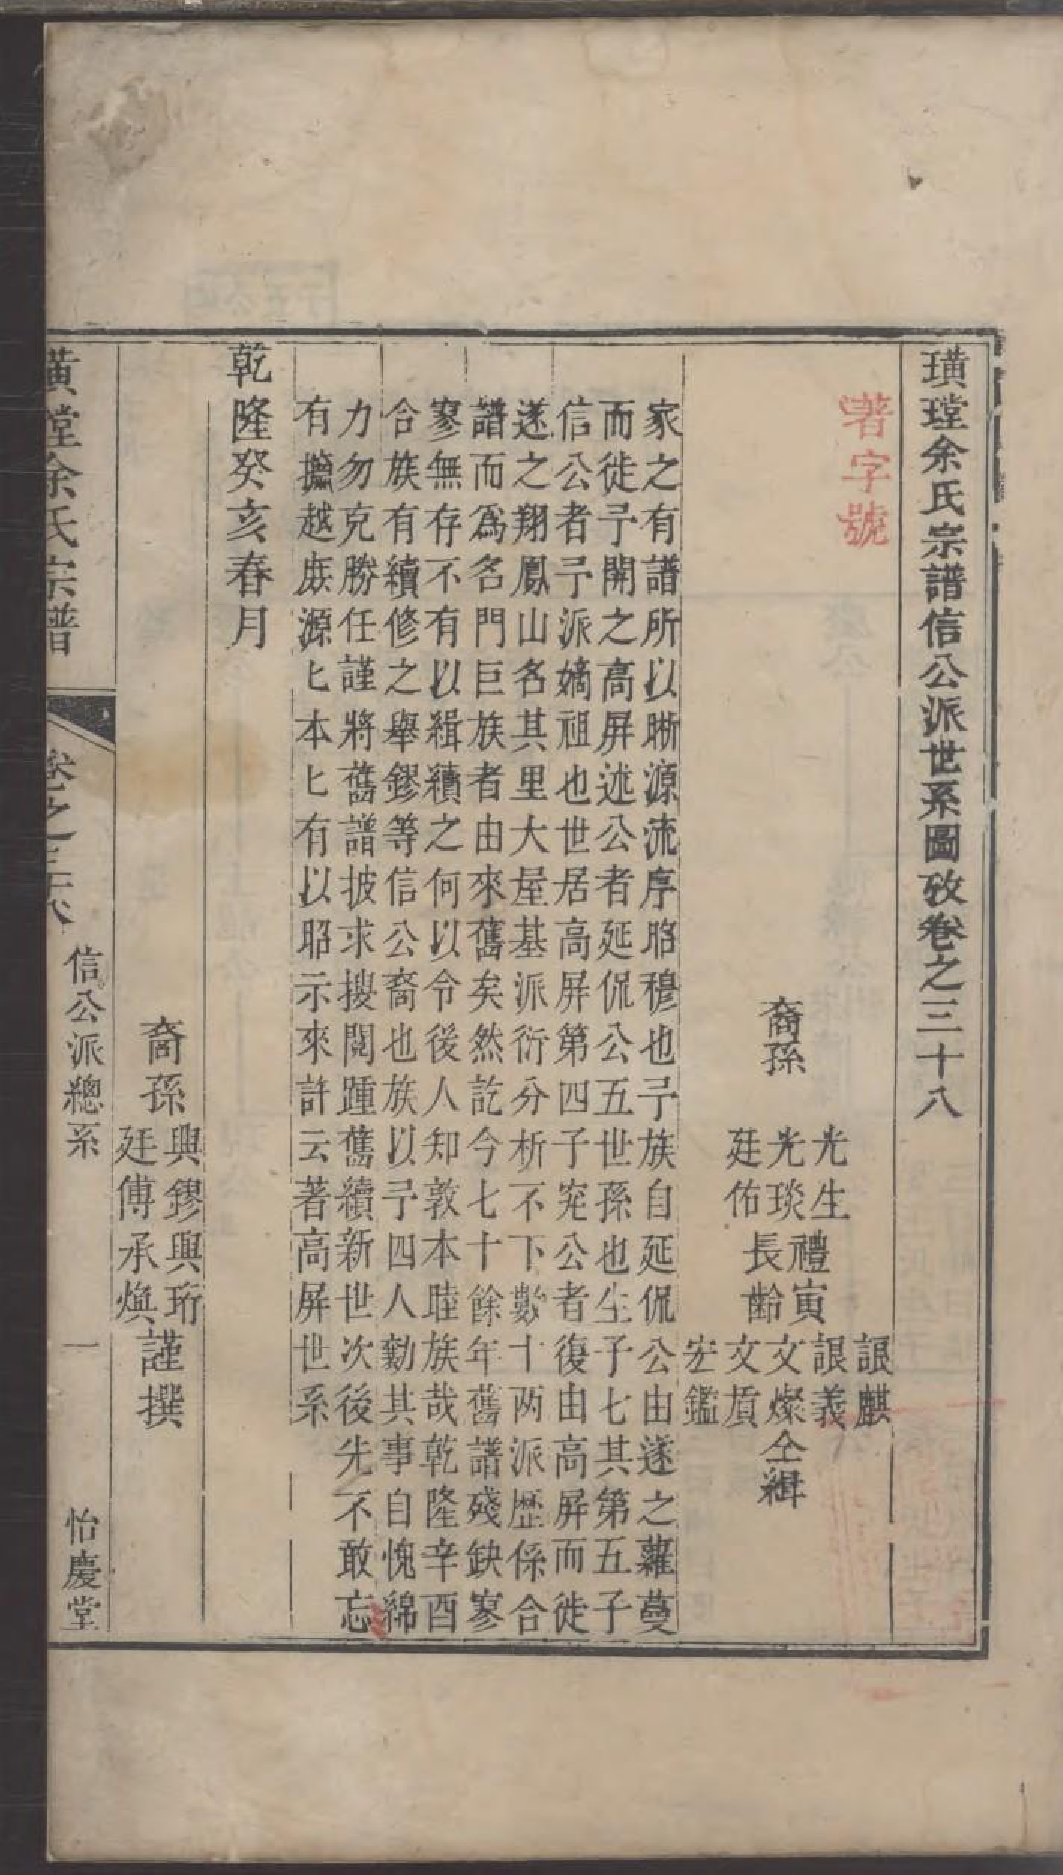 璜瑝余氏宗譜信公派世系圖攷卷之三十八
著字號
裔孫
光生
光琰
廷佑
禮寅
長齡
詪麒
詪義
文燦
文䪴
宏鑑
仝緝
家之有譜所以晰源流序昭穆也予族自延侃公由遂之蘿蔓
而徙予開之高屏述公者延侃公五世孫也生子七其第五子
信公者予派嫡祖也世居高屏第四子㝎公者復由高屏而徙
遂之翔鳳山名其里大屋基派衍分析不下數十两派歷係合
譜而為名門巨族者由來舊矣然訖今七十餘年舊譜殘缺寥
寥無存不有以緝續之何以令後人知敦本睦族哉乾隆辛酉
合族有續修之舉鏐等信公裔也族以予四人勷其事自愧綿
力勿克勝任謹將舊譜披求搜閱踵舊續新世次後先不敢忘
有攙越庻源匕本匕有以昭示來許云著高屏世系
乾隆癸亥春月
裔孫
興鏐興珩
廷傅承煥
謹撰
璜瑝余氏宗譜
卷之三十八
信公派總系
一
怡慶堂